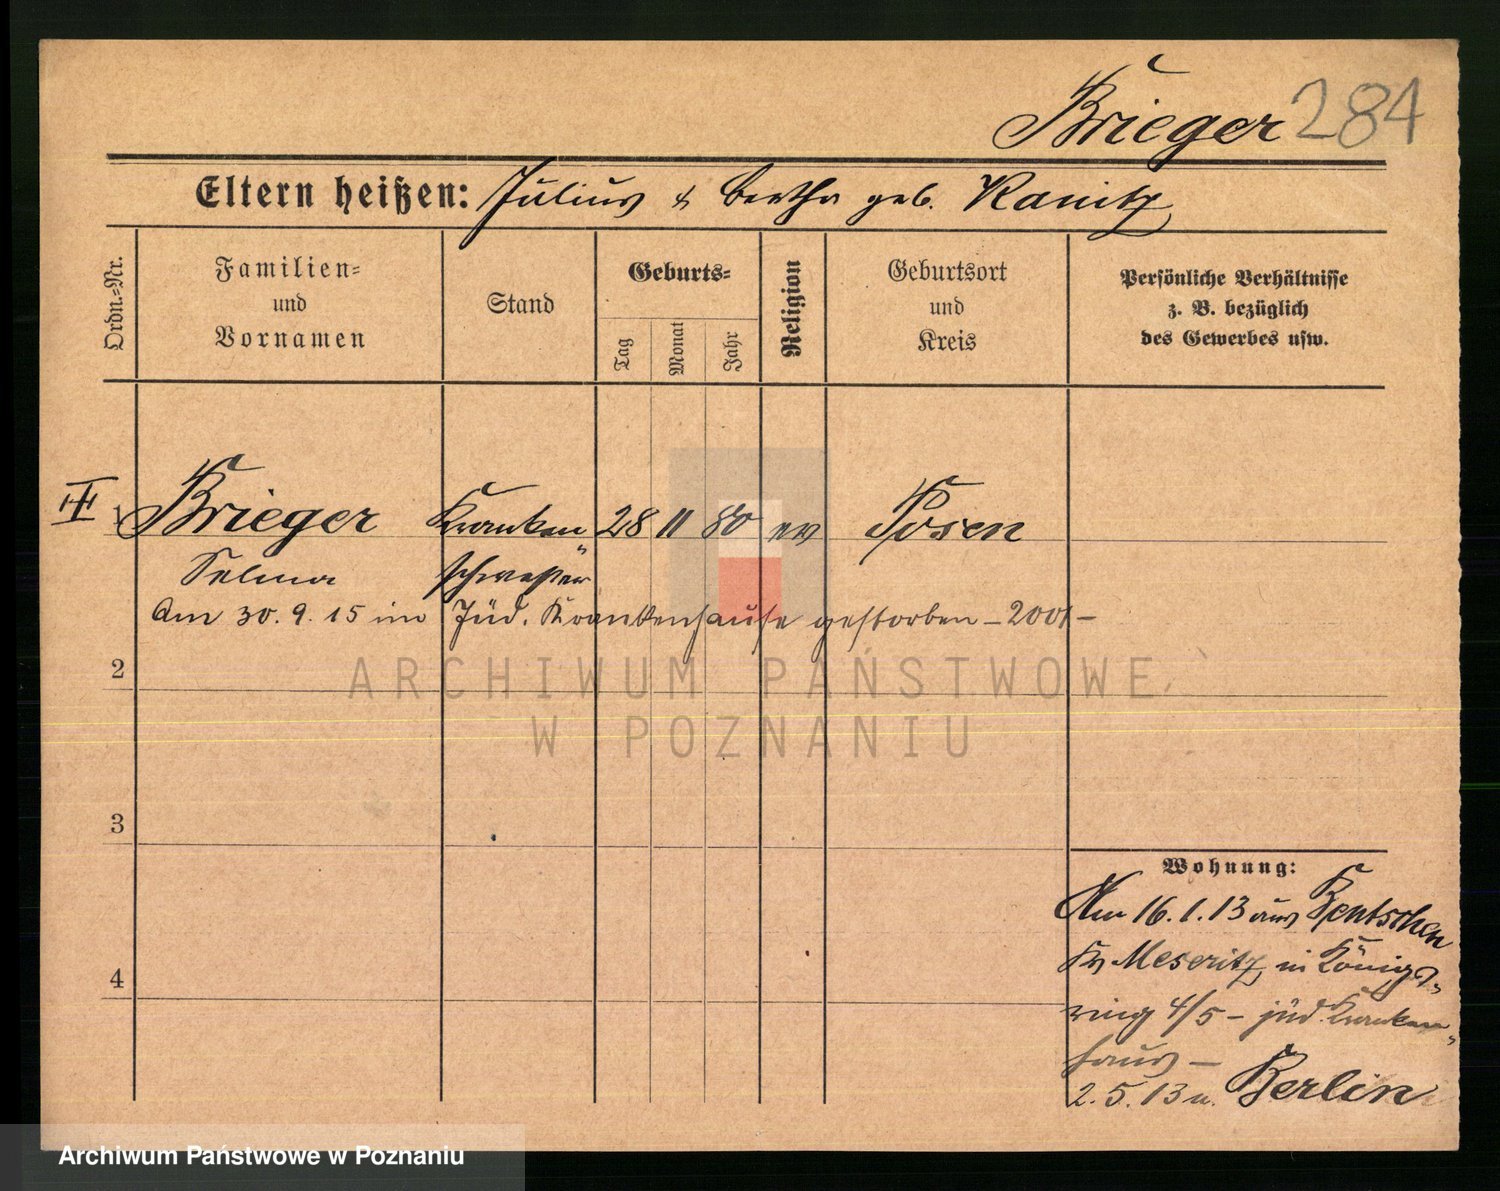 Brieger 284
Eltern heißen: Julius & Bertha geb. Kanitz
Ordn.=Nr.
Familien=
und
Vornamen
Stand
Geburts=
Tag
Monat
Jahr
Religion
Geburtsort
und
Kreis
Persönliche Verhältnisse
z. B. bezüglich
des Gewerbes usw.
1 Brieger Kranken 28 11 80 ev Posen
Selma schwester
Am 30. 9. 15 im Jüd. Krankenhause gestorben – 2001 –
2
3
4
ARCHIWUM PAŃSTWOWE
W POZNANIU
Wohnung:
Am 16. 1. 13 aus Bentschen
Kr. Meseritz, in Königs=
ring 4/5 – jüd. Kranken=
haus –
2. 5. 13 n. Berlin
Archiwum Państwowe w Poznaniu